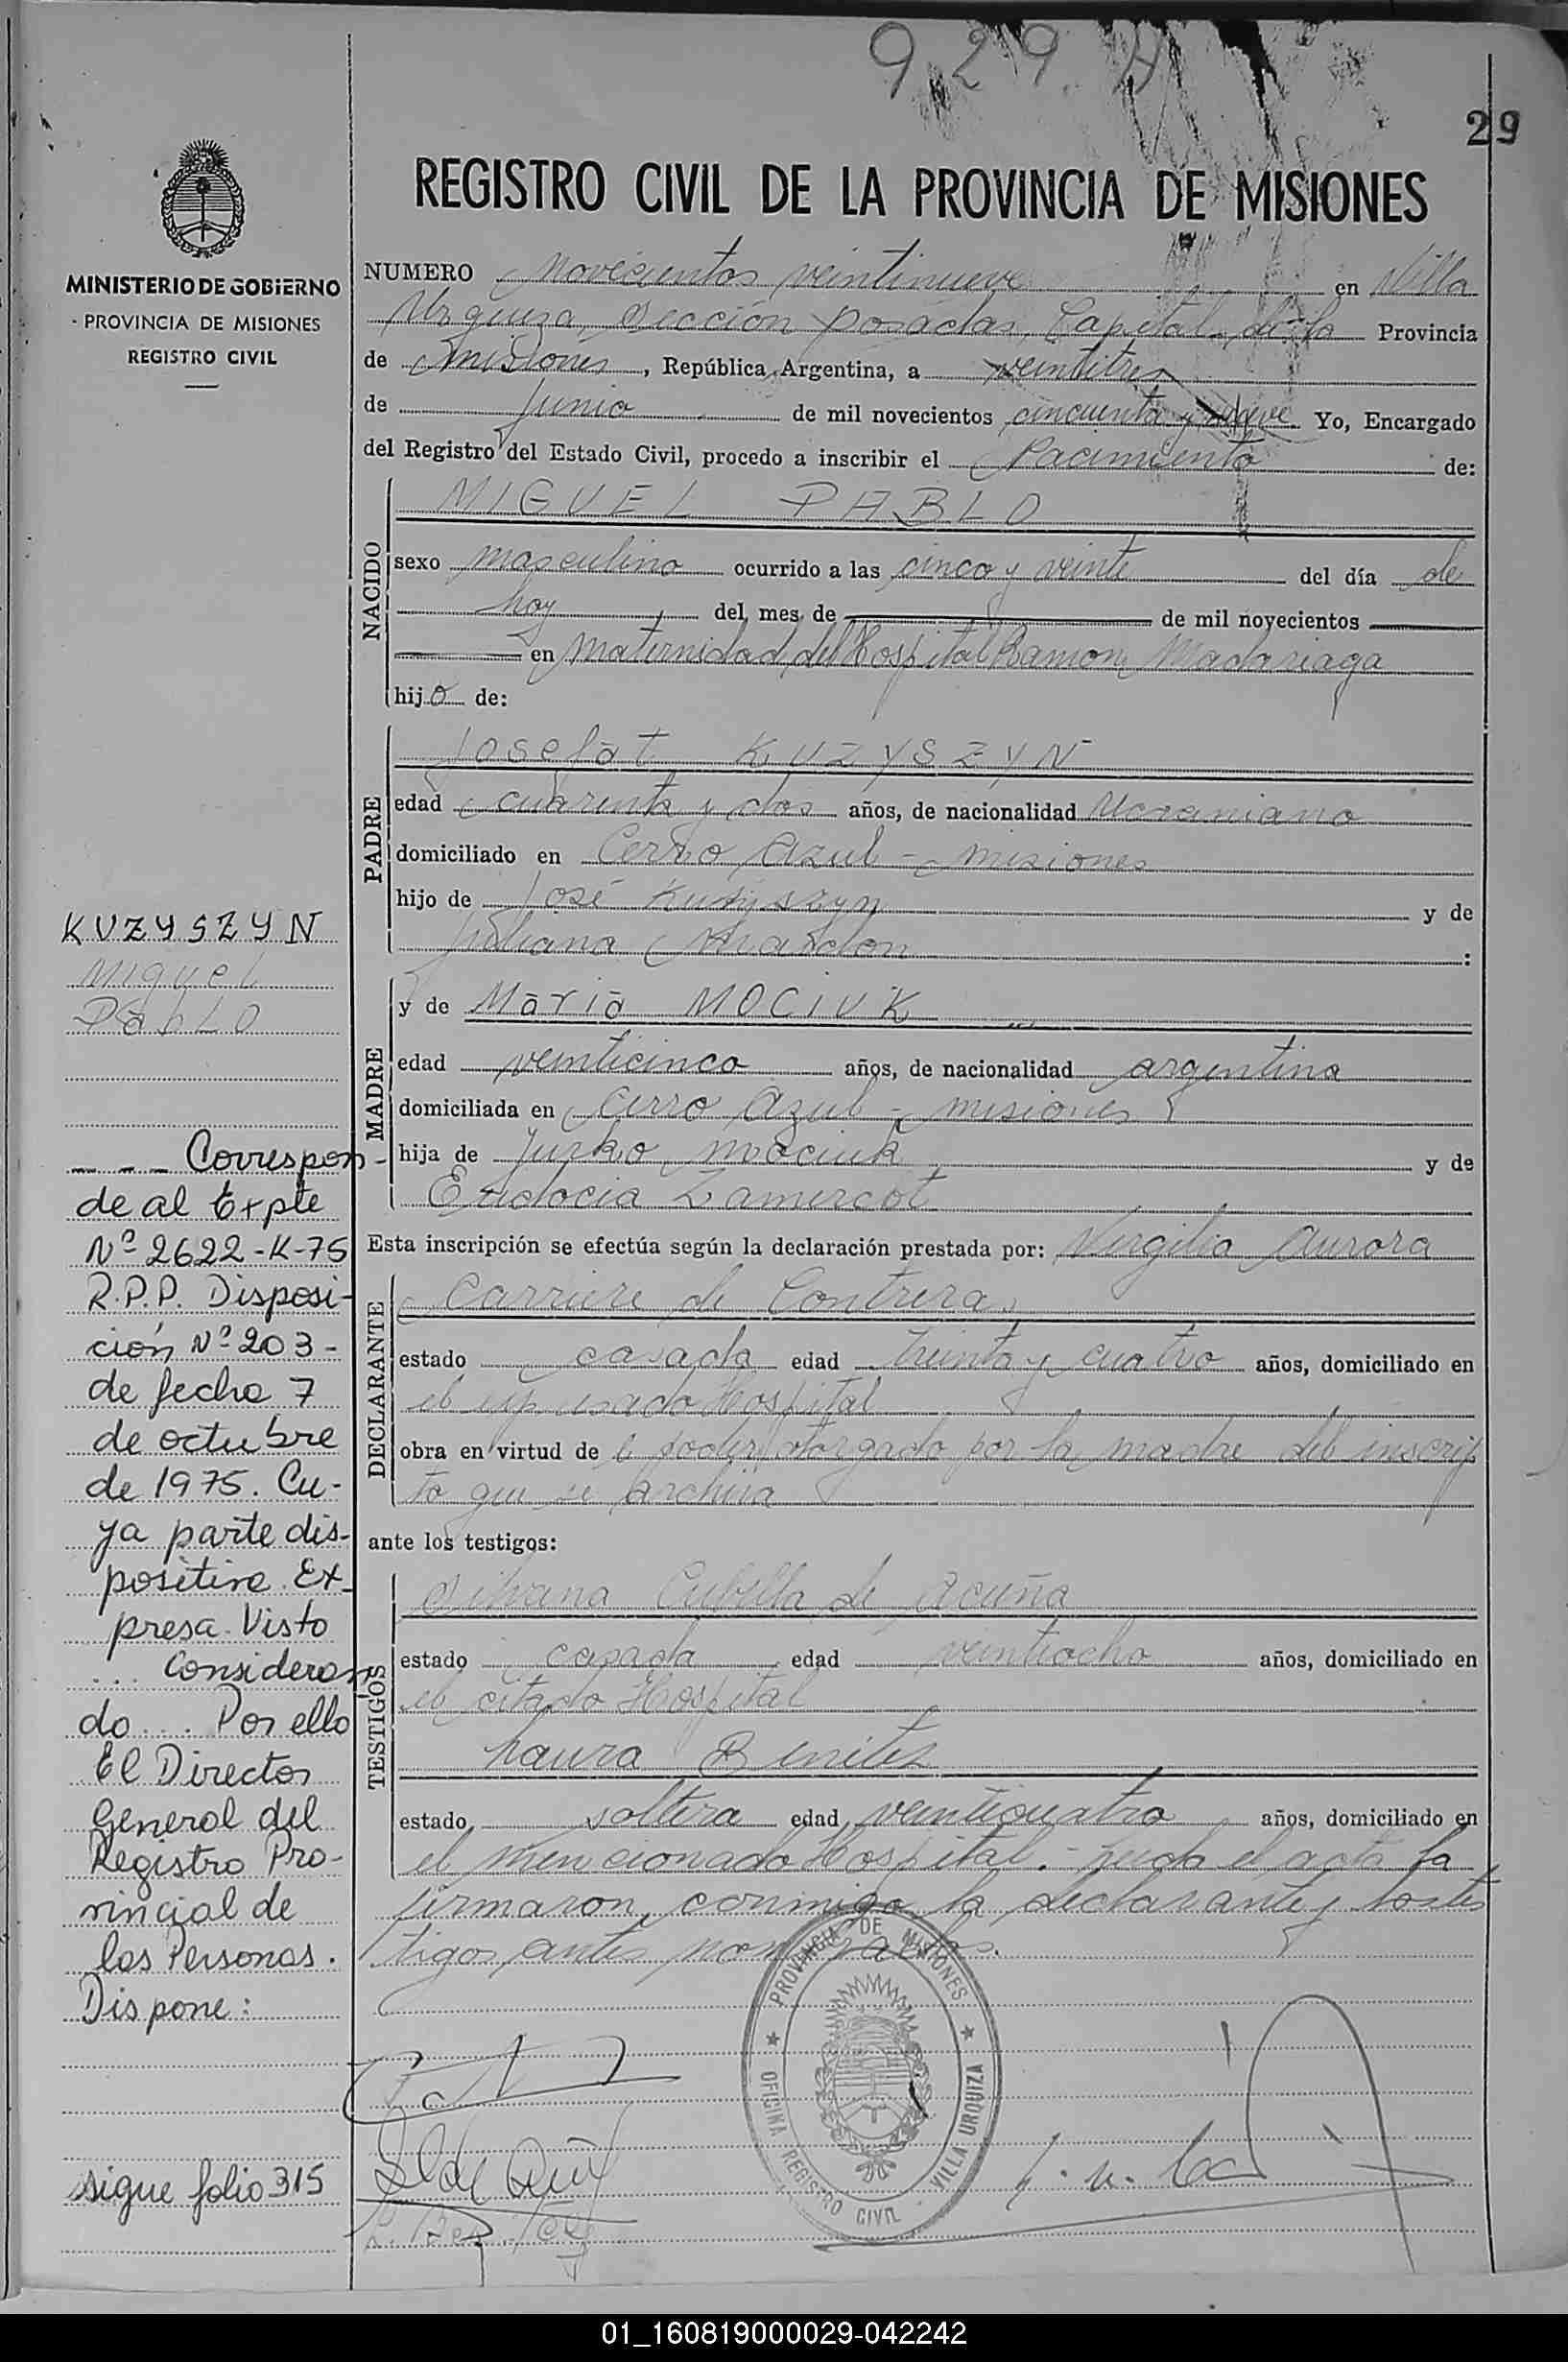 929 A
29
REGISTRO CIVIL DE LA PROVINCIA DE MISIONES
MINISTERIO DE GOBIERNO
- PROVINCIA DE MISIONES
REGISTRO CIVIL
NUMERO Novecientos veintinueve en Villa
Urquiza, Sección Posadas, Capital de la Provincia
de Misiones, República Argentina, a veintitres
de Junio de mil novecientos cincuenta y nueve Yo, Encargado
del Registro del Estado Civil, procedo a inscribir el Nacimiento de:
NACIDO
MIGUEL PABLO
sexo masculino ocurrido a las cinco y veinte del día de
hoy del mes de de mil novecientos
en Maternidad del Hospital Ramon Madariaga
hijo de:
PADRE
Josefat KUZYSZYN
edad cuarenta y dos años, de nacionalidad Ucraniano
domiciliado en Cerro Azul - Misiones
hijo de José Kuzyszyn y de
Juliana :
MADRE
y de Maria MOCIUK
edad veinticinco años, de nacionalidad argentina
domiciliada en Cerro Azul - misiones
hija de Jurko Mociuk y de
Eudocia
Esta inscripción se efectúa según la declaración prestada por: Virgilia Aurora
DECLARANTE
Carriere de Contrera
estado casada edad treinta y cuatro años, domiciliado en
el expresado Hospital
obra en virtud de poder otorgado por la madre del inscrip
to que se archiva
ante los testigos:
TESTIGOS
Silvana Cubilla de Acuña
estado casada edad veintiocho años, domiciliado en
el citado Hospital
Laura Benitez
estado soltera edad veinticuatro años, domiciliado en
el mencionado Hospital. - Leida el acta la
firmaron conmigo la declarante y los tes
tigos antes nombrados.
PROVINCIA DE MISIONES
OFICINA REGISTRO CIVIL - VILLA URQUIZA
KUZYSZYN
Miguel
PabLO
- - - Correspon-
de al Expte
Nº 2622-K-75
R.P.P. Disposi-
ción Nº 203-
de fecha 7
de octubre
de 1975. Cu-
ya parte dis-
positiva Ex-
presa. Visto
... Consideran
do... Por ello
El Director
General del
Registro Pro-
vincial de
las Personas.
Dispone:
sigue folio 315
01_160819000029-042242